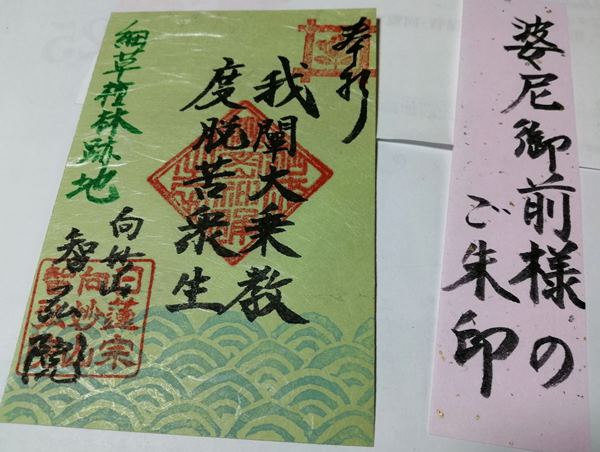 婆尼御前様の
ご朱印
奉拝
我闡大乗教
度脱苦衆生
細草檀林跡地
向妙山
智弘院
日蓮宗
向妙山
智弘院